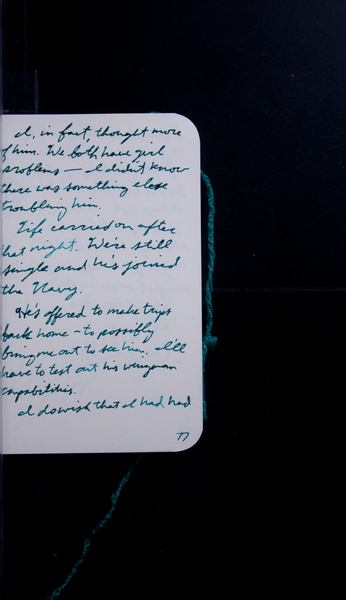 I, in fact, thought more
of him. We both have girl
problems — I didn't know
there was something else
troubling him.
Life carried on after
that night. We're still
single and he's joined
the Navy.
He's offered to make trips
back home - to possibly
bring me out to see him. I'll
have to test out his wingman
capabilities.
I do wish that I had had
77